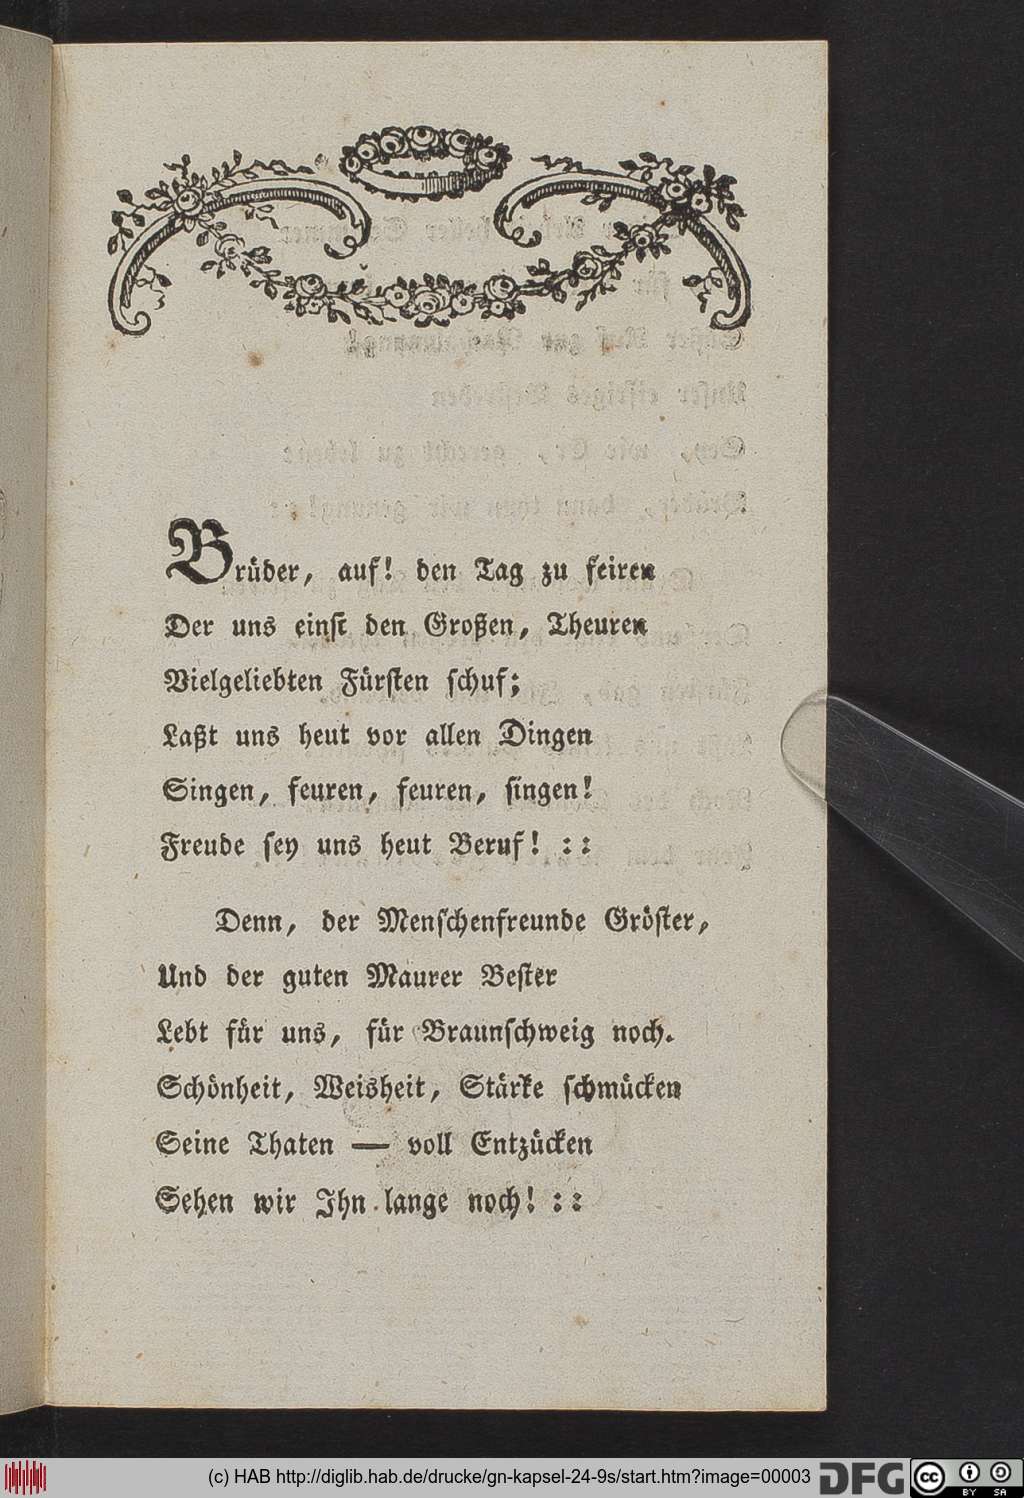 Brüder, auf! den Tag zu feiren
Der uns einst den Großen, Theuren
Vielgeliebten Fürsten schuf;
Laßt uns heut vor allen Dingen
Singen, feuren, feuren, singen!
Freude sey uns heut Beruf! : :
Denn, der Menschenfreunde Gröster,
Und der guten Maurer Bester
Lebt für uns, für Braunschweig noch.
Schönheit, Weisheit, Stärke schmücken
Seine Thaten — voll Entzücken
Sehen wir Ihn lange noch! : :
(c) HAB http://diglib.hab.de/drucke/gn-kapsel-24-9s/start.htm?image=00003
DFG
cc BY SA